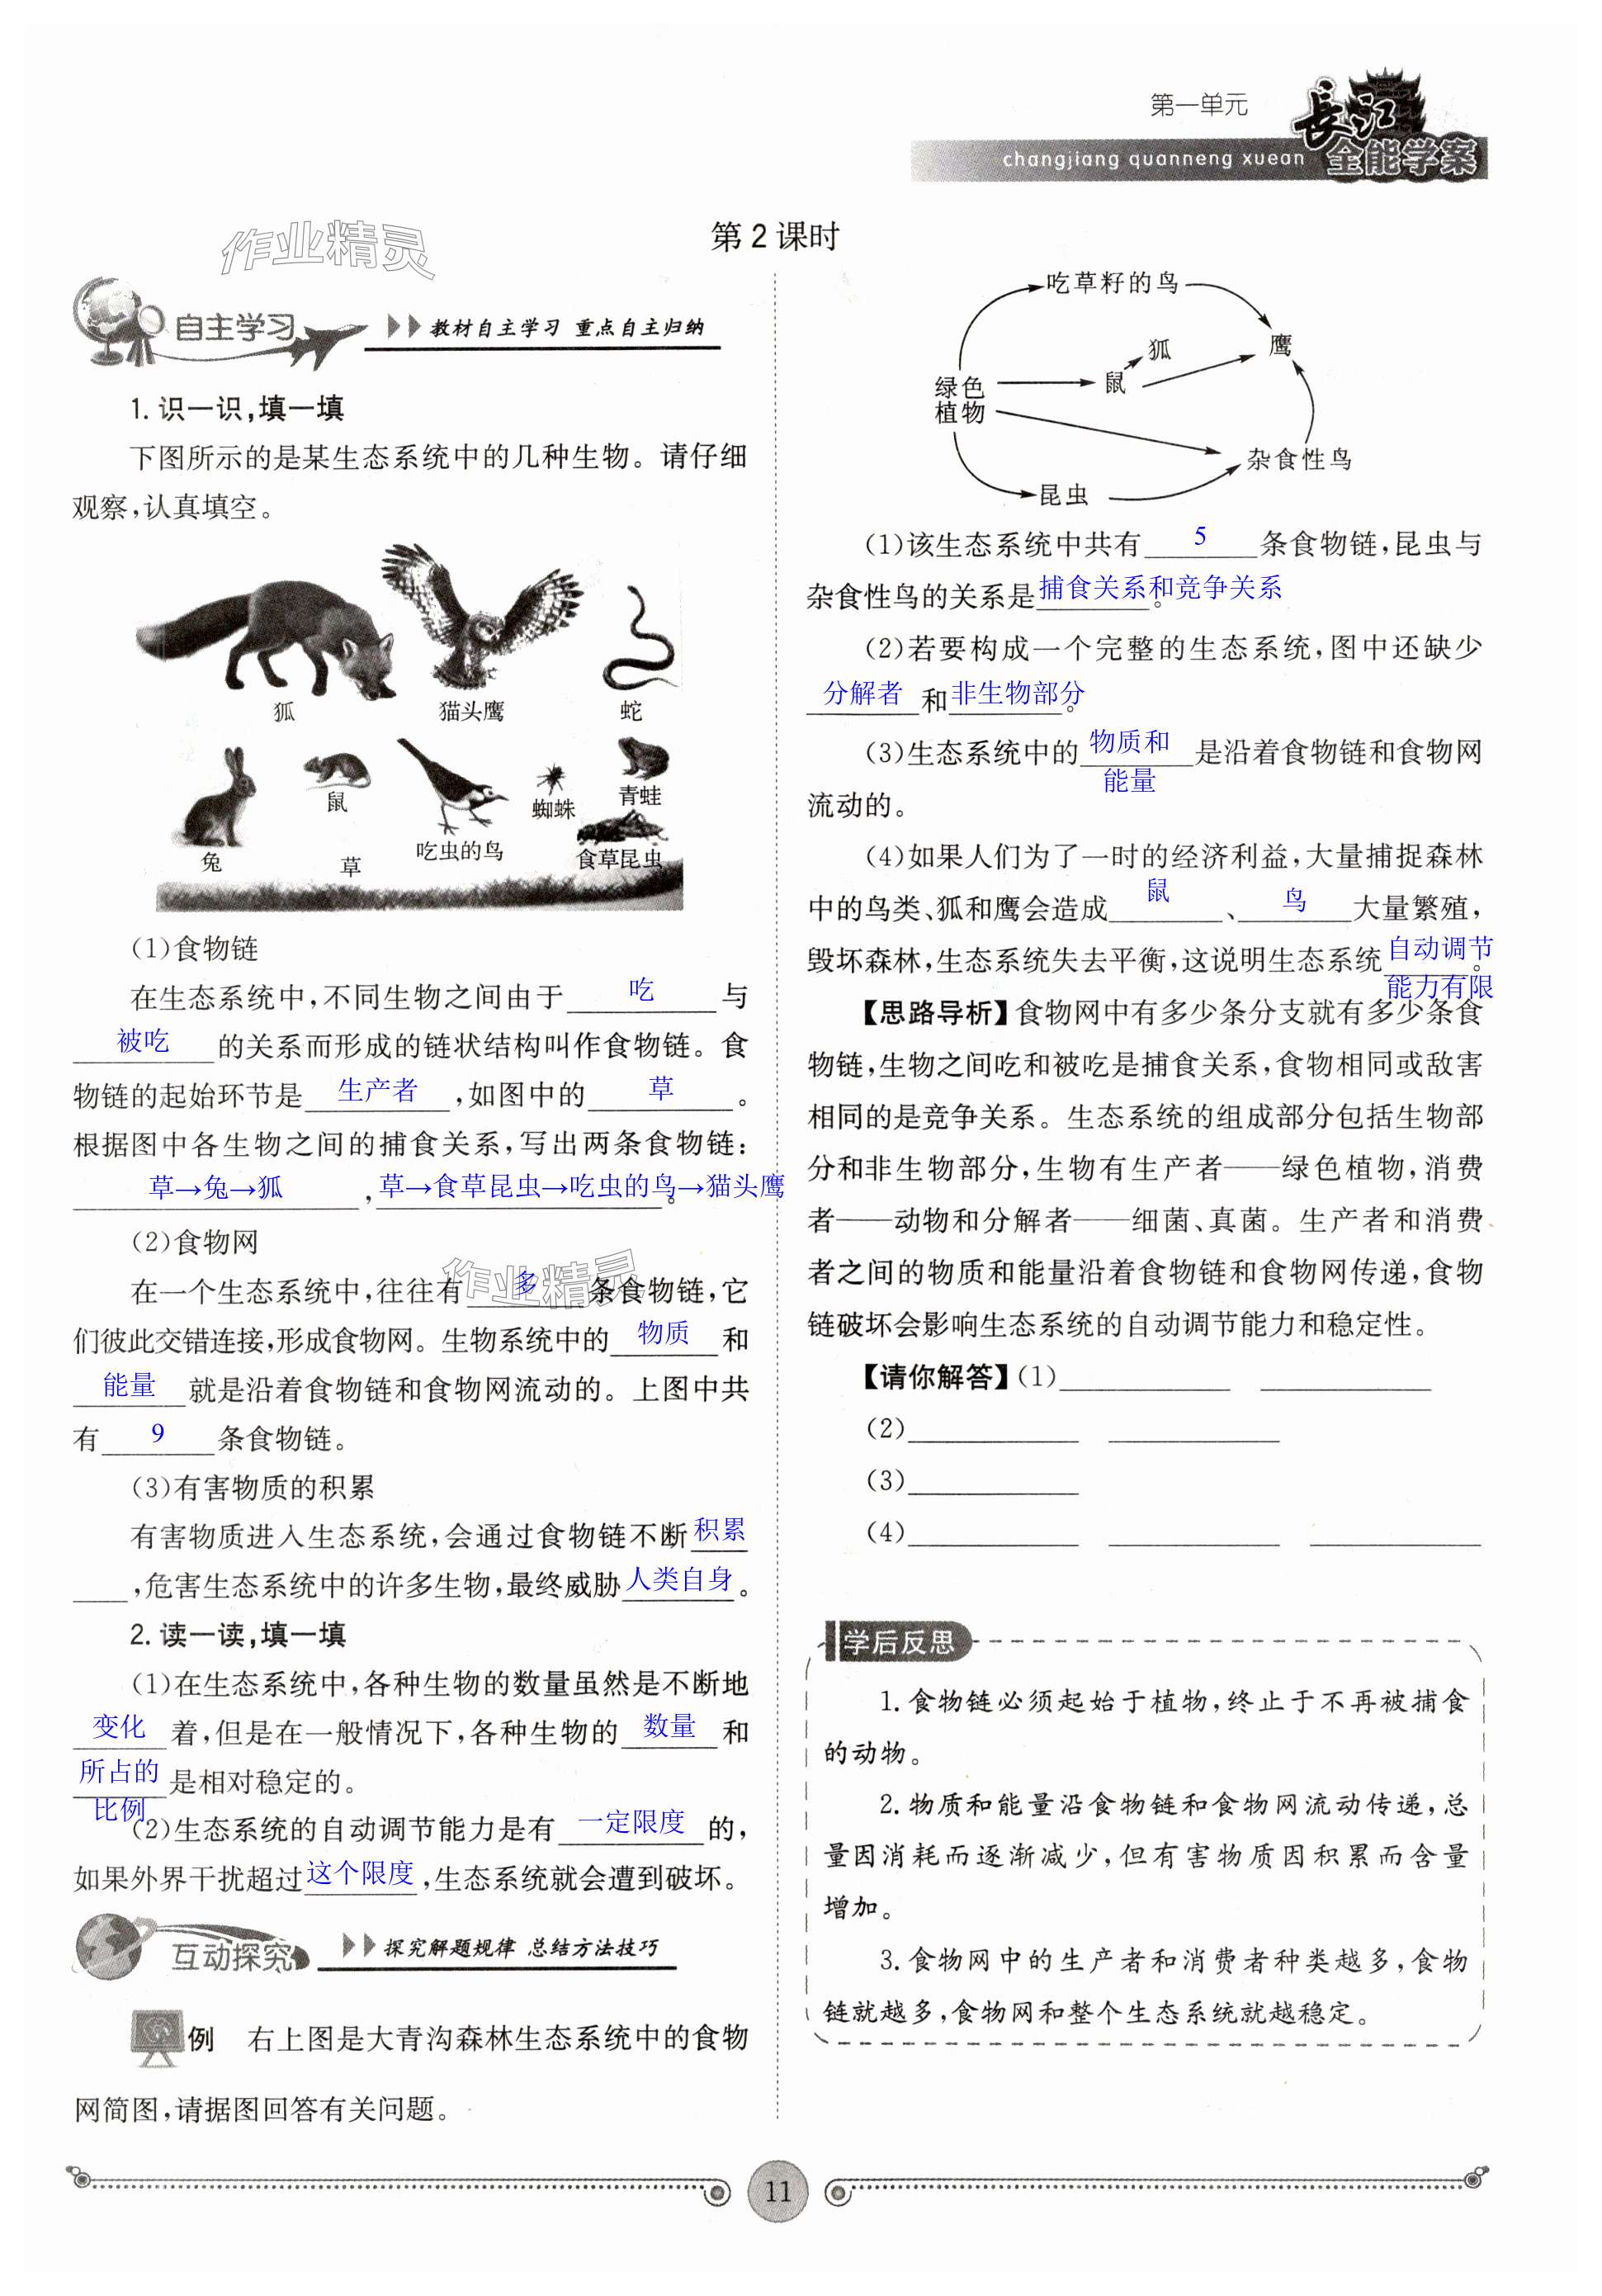 第一单元
長江
changjiang quanneng xuean 全能学案
第2课时
作业精灵
自主学习 教材自主学习 重点自主归纳
1. 识一识,填一填
下图所示的是某生态系统中的几种生物。请仔细
观察,认真填空。
狐 猫头鹰 蛇
兔 鼠 草 吃虫的鸟 蜘蛛 青蛙 食草昆虫
(1)食物链
在生态系统中,不同生物之间由于 吃 与
被吃 的关系而形成的链状结构叫作食物链。食
物链的起始环节是 生产者 ,如图中的 草 。
根据图中各生物之间的捕食关系,写出两条食物链:
草→兔→狐 , 草→食草昆虫→吃虫的鸟→猫头鹰 。
(2)食物网
作业精灵
在一个生态系统中,往往有 多 条食物链,它
们彼此交错连接,形成食物网。生物系统中的 物质 和
能量 就是沿着食物链和食物网流动的。上图中共
有 9 条食物链。
(3)有害物质的积累
有害物质进入生态系统,会通过食物链不断 积累
,危害生态系统中的许多生物,最终威胁 人类自身 。
2. 读一读,填一填
(1)在生态系统中,各种生物的数量虽然是不断地
变化 着,但是在一般情况下,各种生物的 数量 和
所占的 是相对稳定的。
比例
(2)生态系统的自动调节能力是有 一定限度 的,
如果外界干扰超过 这个限度 ,生态系统就会遭到破坏。
互动探究 探究解题规律 总结方法技巧
例 右上图是大青沟森林生态系统中的食物
网简图,请据图回答有关问题。
吃草籽的鸟
狐 鹰
绿色 鼠
植物
杂食性鸟
昆虫
(1)该生态系统中共有 5 条食物链,昆虫与
杂食性鸟的关系是 捕食关系和竞争关系 。
(2)若要构成一个完整的生态系统,图中还缺少
分解者 和 非生物部分 。
(3)生态系统中的 物质和 是沿着食物链和食物网
能量
流动的。
(4)如果人们为了一时的经济利益,大量捕捉森林
中的鸟类、狐和鹰会造成 鼠 、 鸟 大量繁殖,
毁坏森林,生态系统失去平衡,这说明生态系统 自动调节 。
能力有限
【思路导析】食物网中有多少条分支就有多少条食
物链,生物之间吃和被吃是捕食关系,食物相同或敌害
相同的是竞争关系。生态系统的组成部分包括生物部
分和非生物部分,生物有生产者——绿色植物,消费
者——动物和分解者——细菌、真菌。生产者和消费
者之间的物质和能量沿着食物链和食物网传递,食物
链破坏会影响生态系统的自动调节能力和稳定性。
【请你解答】(1)
(2)
(3)
(4)
学后反思
1. 食物链必须起始于植物,终止于不再被捕食
的动物。
2. 物质和能量沿食物链和食物网流动传递,总
量因消耗而逐渐减少,但有害物质因积累而含量
增加。
3. 食物网中的生产者和消费者种类越多,食物
链就越多,食物网和整个生态系统就越稳定。
11